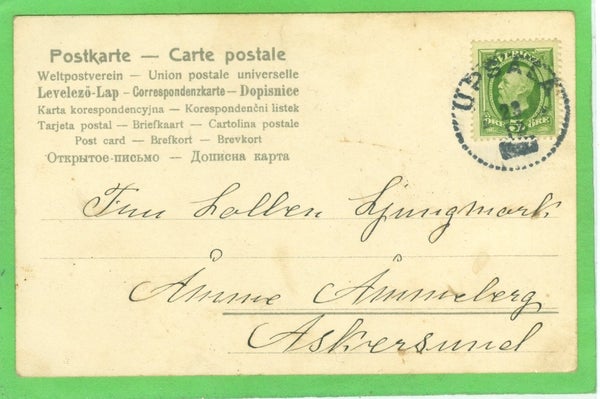 Postkarte — Carte postale
Weltpostverein — Union postale universelle
Levelező-Lap — Correspondenzkarte — Dopisnice
Karta korespondencyjna — Korespondenční listek
Tarjeta postal — Briefkaart — Cartolina postale
Post card — Brefkort — Brevkort
Открытое-письмо — Дописна карта
UPSALA
5
Ljungmark
Åmme Åmmeberg
Askersund